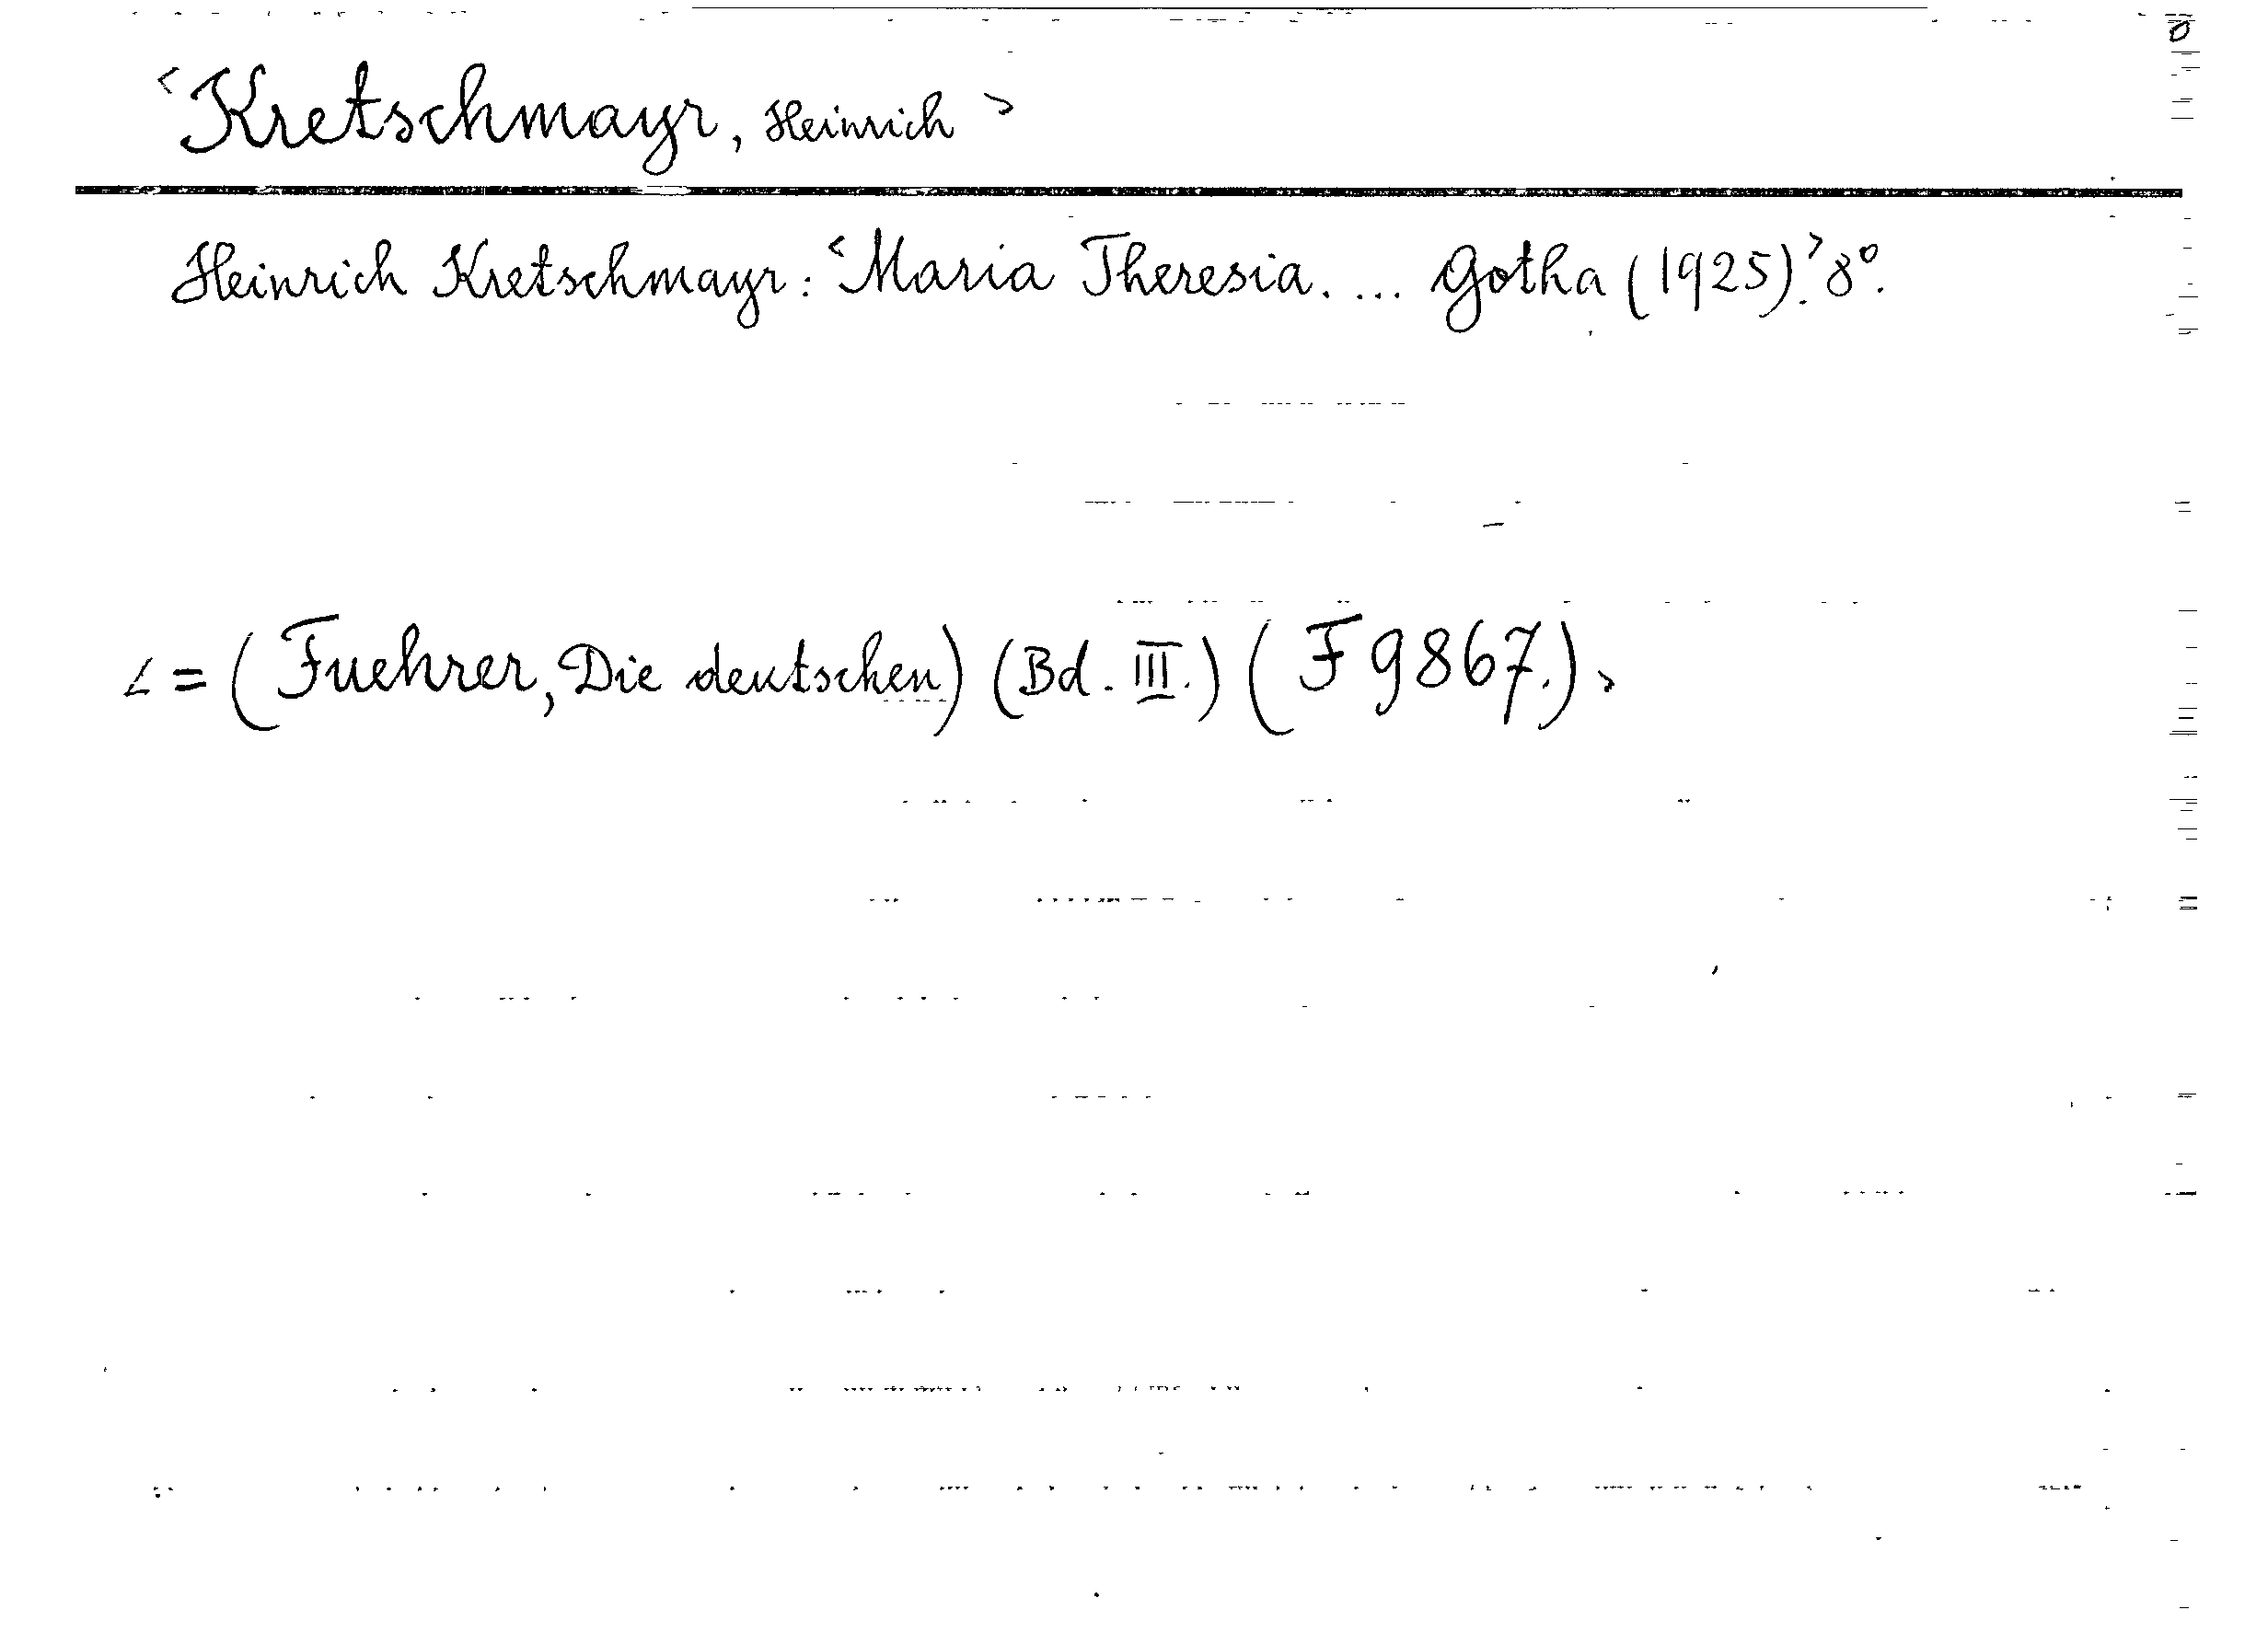 <Kretschmayr, Heinrich>
Heinrich Kretschmayr: <Maria Theresia. ... Gotha (1925).> 8°.
<= (Fuehrer, Die deutschen) (Bd. III.) (F 9867.)>